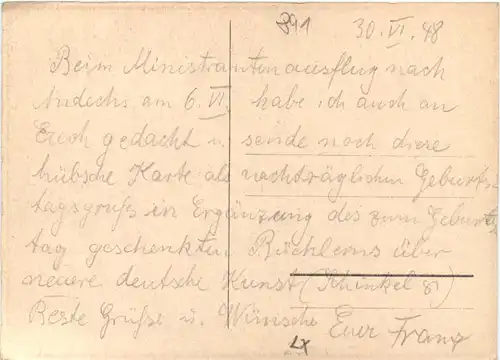 891 30. VI. 48
Beim Ministrantenausflug nach
Andechs am 6. VI. habe ich auch an
Euch gedacht u. sende noch diese
hübsche Karte als nachträglichen Geburts-
tagsgruß in Ergänzung des zum Geburts-
tag geschenkten Büchleins über
neuere deutsche Kunst (Schinkel
Beste Grüße u. Wünsche Euer Franz